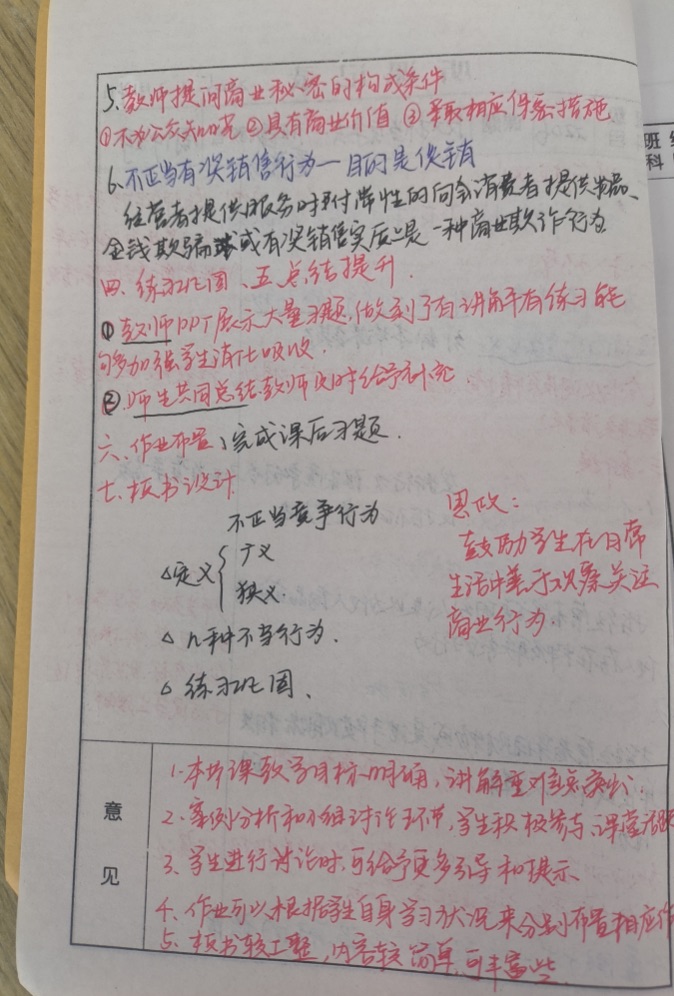 5. 教师提问商业秘密的构成条件
①不为公众知晓 ②具有商业价值 ③采取相应保密措施
6. 不正当有奖销售行为—目的是促销
经营者提供服务时附带性的向会消费者提供物品、
金钱欺骗或有奖销售实质是一种商业欺诈行为
四、练习巩固、五总结提升.
①教师PPT展示大量习题,做到了有讲解有练习能
够加强学生消化吸收.
②.师生共同总结.教师及时给予补充
六、作业布置、完成课后习题.
七、板书设计
不正当竞争行为
△定义{广义
狭义.
△几种不当行为.
△练习巩固、
思政:
鼓励学生在日常
生活中善于观察关注
商业行为.
班级
科
意
见
1.本节课教学目标明确,讲解重难点突出.
2.案例分析和小组讨论环节,学生积极参与,课堂活跃
3、学生进行讨论时,可给予更多引导和提示、
4、作业可以根据学生自身学习状况来分别布置相应作
5、板书较工整,内容较简单,可丰富些.